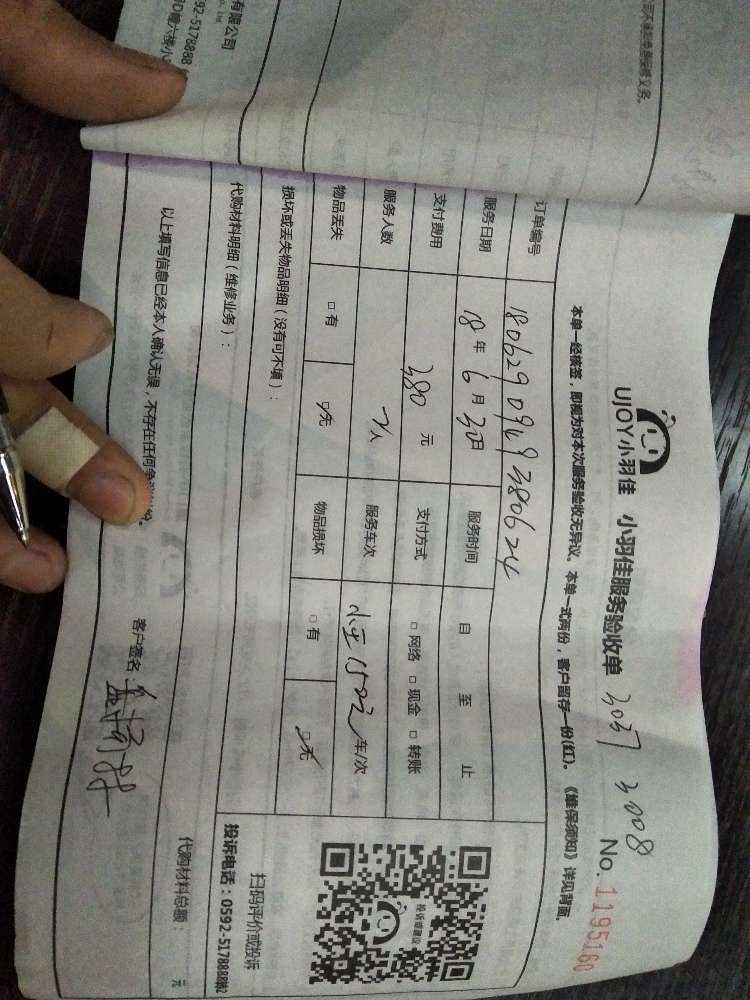 UJOY小羽佳 小羽佳服务验收单 3037 3008
No. 1195160
本单一经核签,即视为对本次服务验收无异议。本单一式两份,客户留存一份(红)。《维保须知》详见背面。
订单编号
服务日期 18年6月30日 服务时间 自 至 止
支付费用 380元 支付方式 □网络 □现金 □转账
服务人数 2人 服务车次 车/次
物品丢失 □有 □无 物品损坏 □有 □无
损坏或丢失物品明细(没有可不填):
代购材料明细(维修业务):
代购材料总额: 元
以上填写信息已经本人确认无误,不存在任何
客户签名
投诉或建议
扫码评价或投诉
投诉电话:0592-5178888转2
有限公司
592-5178888